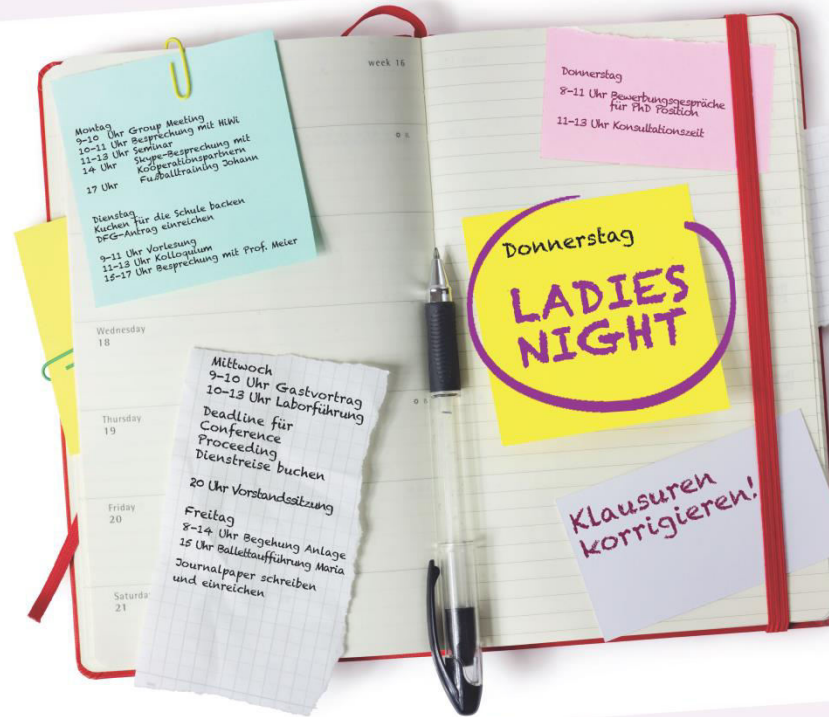 week 16
Montag
9-10 Uhr Group Meeting
10-11 Uhr Besprechung mit HiWi
11-13 Uhr Seminar
14 Uhr Skype-Besprechung mit
Kooperationspartnern
17 Uhr Fußballtraining Johann
Dienstag
Kuchen für die Schule backen
DFG-Antrag einreichen
9-11 Uhr Vorlesung
11-13 Uhr Kolloquium
15-17 Uhr Besprechung mit Prof. Meier
Wednesday
18
Thursday
19
Friday
20
Saturda
21
Mittwoch
9-10 Uhr Gastvortrag
10-13 Uhr Laborführung
Deadline für
Conference
Proceeding
Dienstreise buchen
20 Uhr Vorstandssitzung
Freitag
8-14 Uhr Begehung Anlage
15 Uhr Ballettaufführung Maria
Journalpaper schreiben
und einreichen
Donnerstag
8-11 Uhr Bewerbungsgespräche
für PhD Position
11-13 Uhr Konsultationszeit
Donnerstag
LADIES
NIGHT
Klausuren
korrigieren!